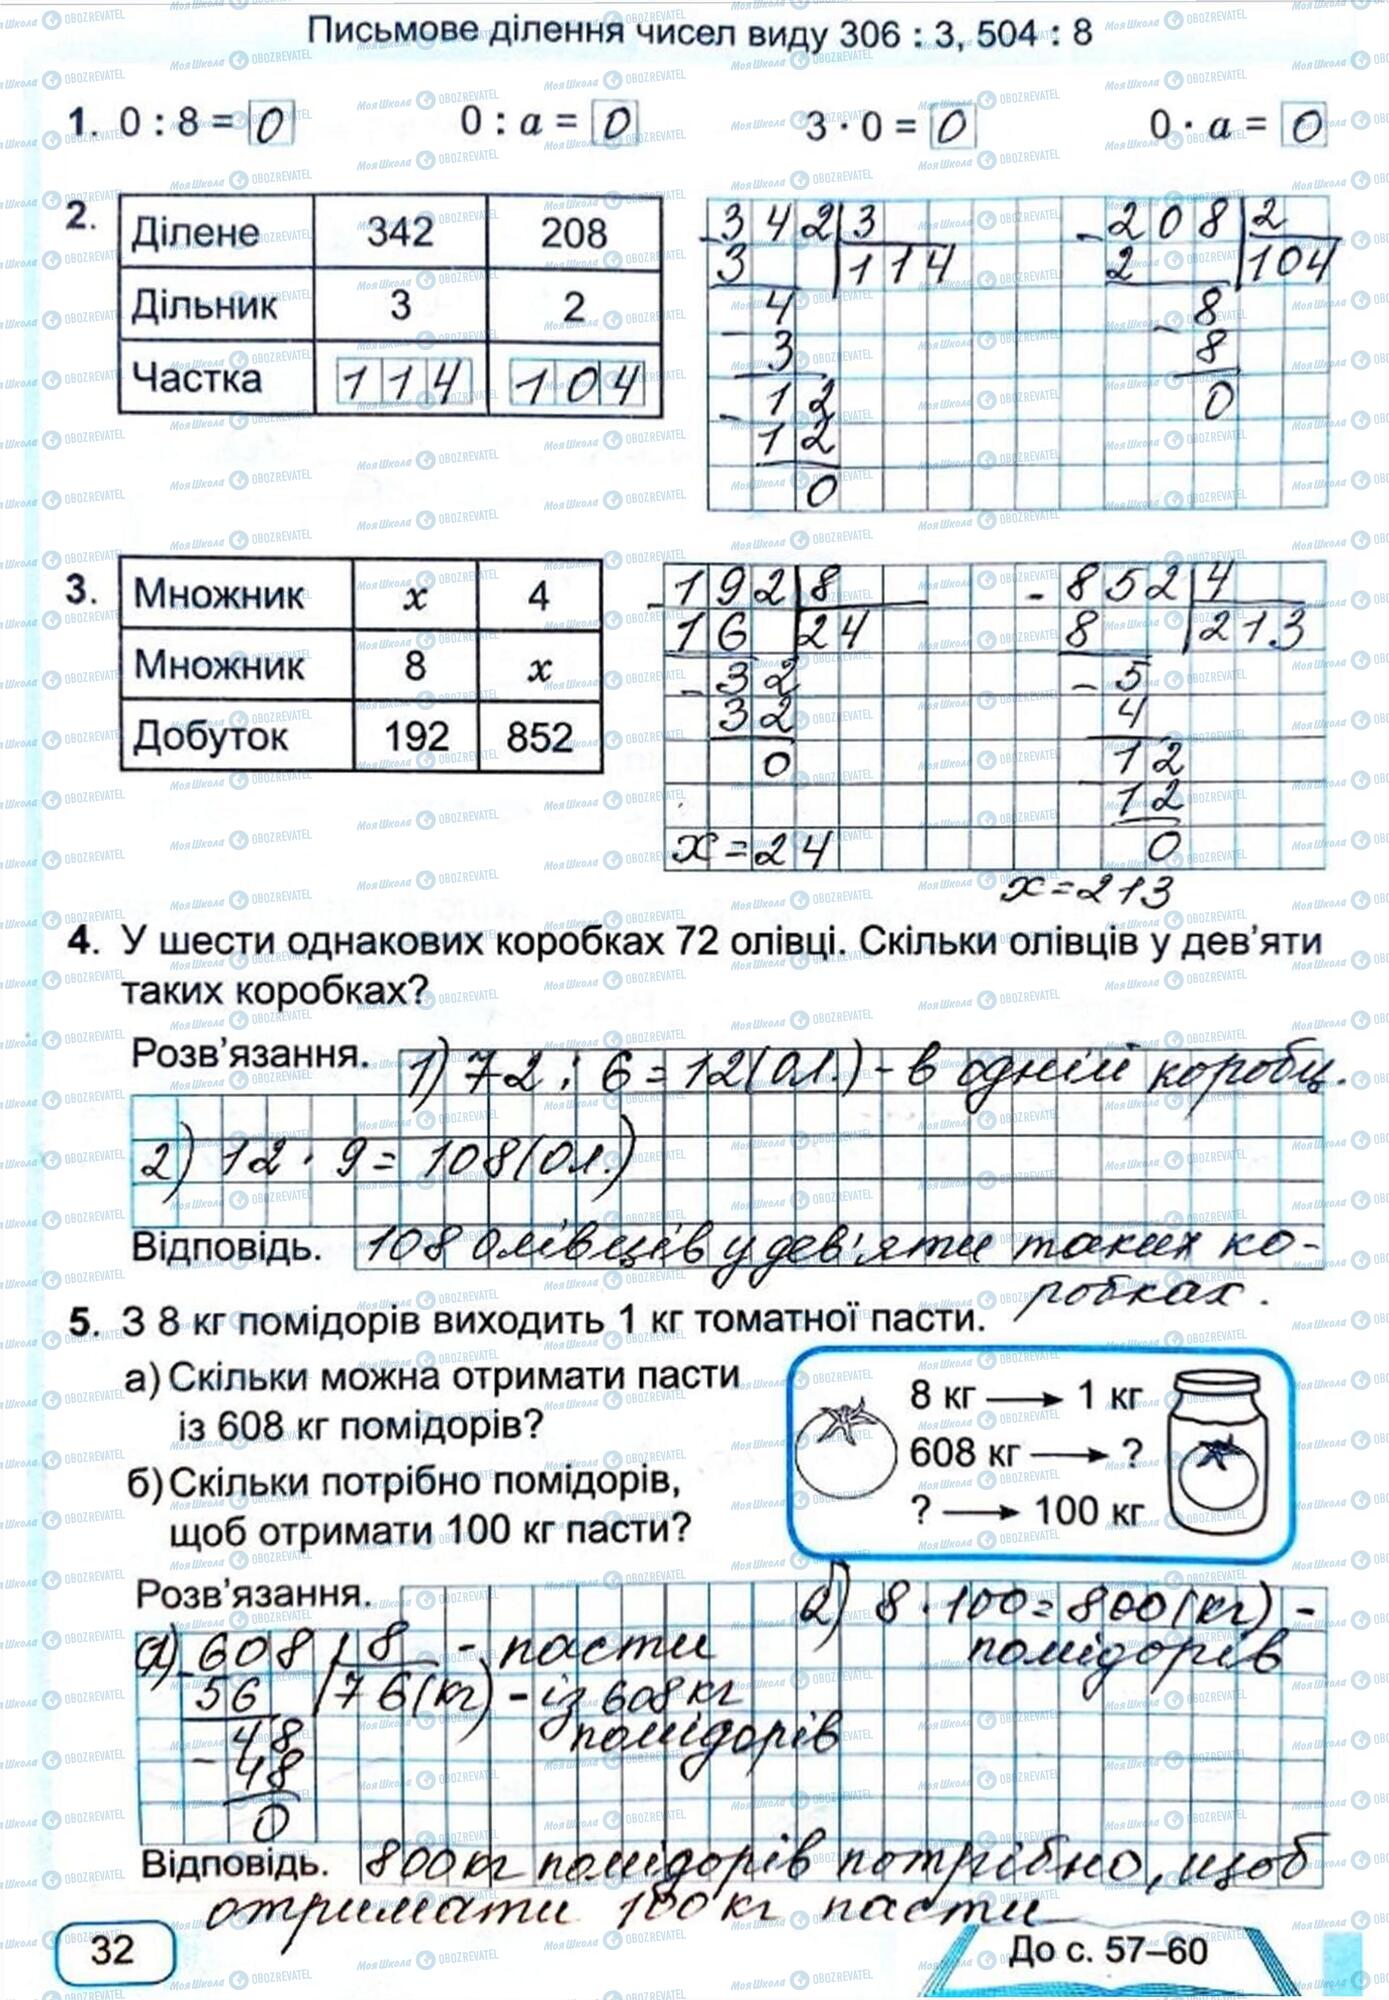 Письмове ділення чисел виду 306 : 3, 504 : 8
1. 0 : 8 = 0   0 : a = 0   3 · 0 = 0   0 · a = 0
2. Ділене 342 208
Дільник 3 2
Частка 114 104
- 342 | 3
3 | 114
- 4
3
- 12
12
0
- 208 | 2
2 | 104
- 8
8
0
3. Множник x 4
Множник 8 x
Добуток 192 852
- 192 | 8
16 | 24
- 32
32
0
x = 24
- 852 | 4
8 | 213
- 5
4
12
12
0
x = 213
4. У шести однакових коробках 72 олівці. Скільки олівців у дев'яти
таких коробках?
Розв'язання. 1) 72 : 6 = 12 (ол.) - в одній коробц.
2) 12 · 9 = 108 (ол.)
Відповідь. 108 олівців у дев'яти таких ко-
робках.
5. З 8 кг помідорів виходить 1 кг томатної пасти.
а) Скільки можна отримати пасти
із 608 кг помідорів?
б) Скільки потрібно помідорів,
щоб отримати 100 кг пасти?
8 кг → 1 кг
608 кг → ?
? → 100 кг
Розв'язання.
1) - 608 | 8 - пасти
56 | 76 (кг) - із 608 кг
помідорів
- 48
48
0
2) 8 · 100 = 800 (кг) -
помідорів
Відповідь. 800 кг помідорів потрібно, щоб
отримати 100 кг пасти
32
До с. 57–60
МояШкола OBOZREVATEL